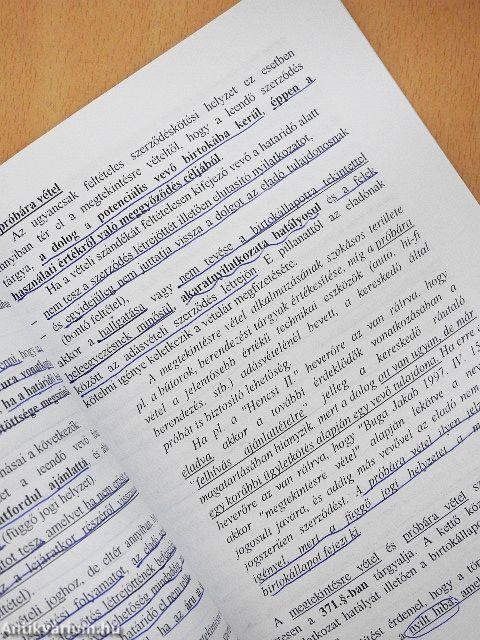 próbára vétel
Az ugyancsak feltételes szerződéskötési helyzet ez esetben
annyiban tér el a megtekintésre vételtől, hogy a leendő szerződés
tárgya, a dolog a potenciális vevő birtokába kerül, éppen a
használati értékről való meggyőződés céljából.
Ha a vételi szándékát feltételesen kifejező vevő a határidő alatt
– nem tesz a szerződés létrejöttét illetően elutasító nyilatkozatot,
– és egyidejűleg nem juttatja vissza a dolgot az eladó tulajdonosnak
(bontó feltétel),
akkor a hallgatása vagy nem tevése a birtokállapotra tekintettel
beleegyezésnek minősül, akaratnyilatkozata hatályosul és a felek
között az adásvételi szerződés létrejön. E pillanattól az eladónak
kötelmi igénye keletkezik a vételár megfizetésére.
A megtekintésre vétel alkalmazásának szokásos területe
pl. a bútorok, berendezési tárgyak értékesítése, míg a próbára
vétel a jelentősebb értékű technikai eszközök (autó, hi-fi
berendezés, stb.) adásvételénél bevett, a kereskedő által
próbát is biztosító lehetőség.
Ha pl. a "Hencsi II." heverőre az van ráírva, hogy
eladva, akkor a további érdeklődők vonatkozásában a
"felhívás ajánlattételre" jelleg a kereskedő ráutaló
magatartásában hiányzik, mert a dolog ott van ugyan, de már
egy korábbi ügyletkötés alapján egy vevő tulajdona. Ha erre a
heverőre az van ráírva, hogy "Buga Jakab 1997. IV. 15
akkor "megtekintésre vétel" alapján lekötve a nev
jogosult javára, és addig más vevővel az eladó nem
jogszerűen szerződést. A próbára vétel ilyen jelz
igényel, mert a függő jogi helyzetet a m
birtokállapot fejezi ki.
A megtekintésre vétel és próbára vétel s
esen a 371.§-ban tárgyalja. A kettő köz
kozat hatályát illetően a birtokállapot
tést érdemel, hogy a tör
nyílt hiba, amel
ura vonatko
, ha a határidő
ttfordul ajánlattá
(függő jogi helyzet).
a lejáratkor részéről vissza
Antikvarium.hu